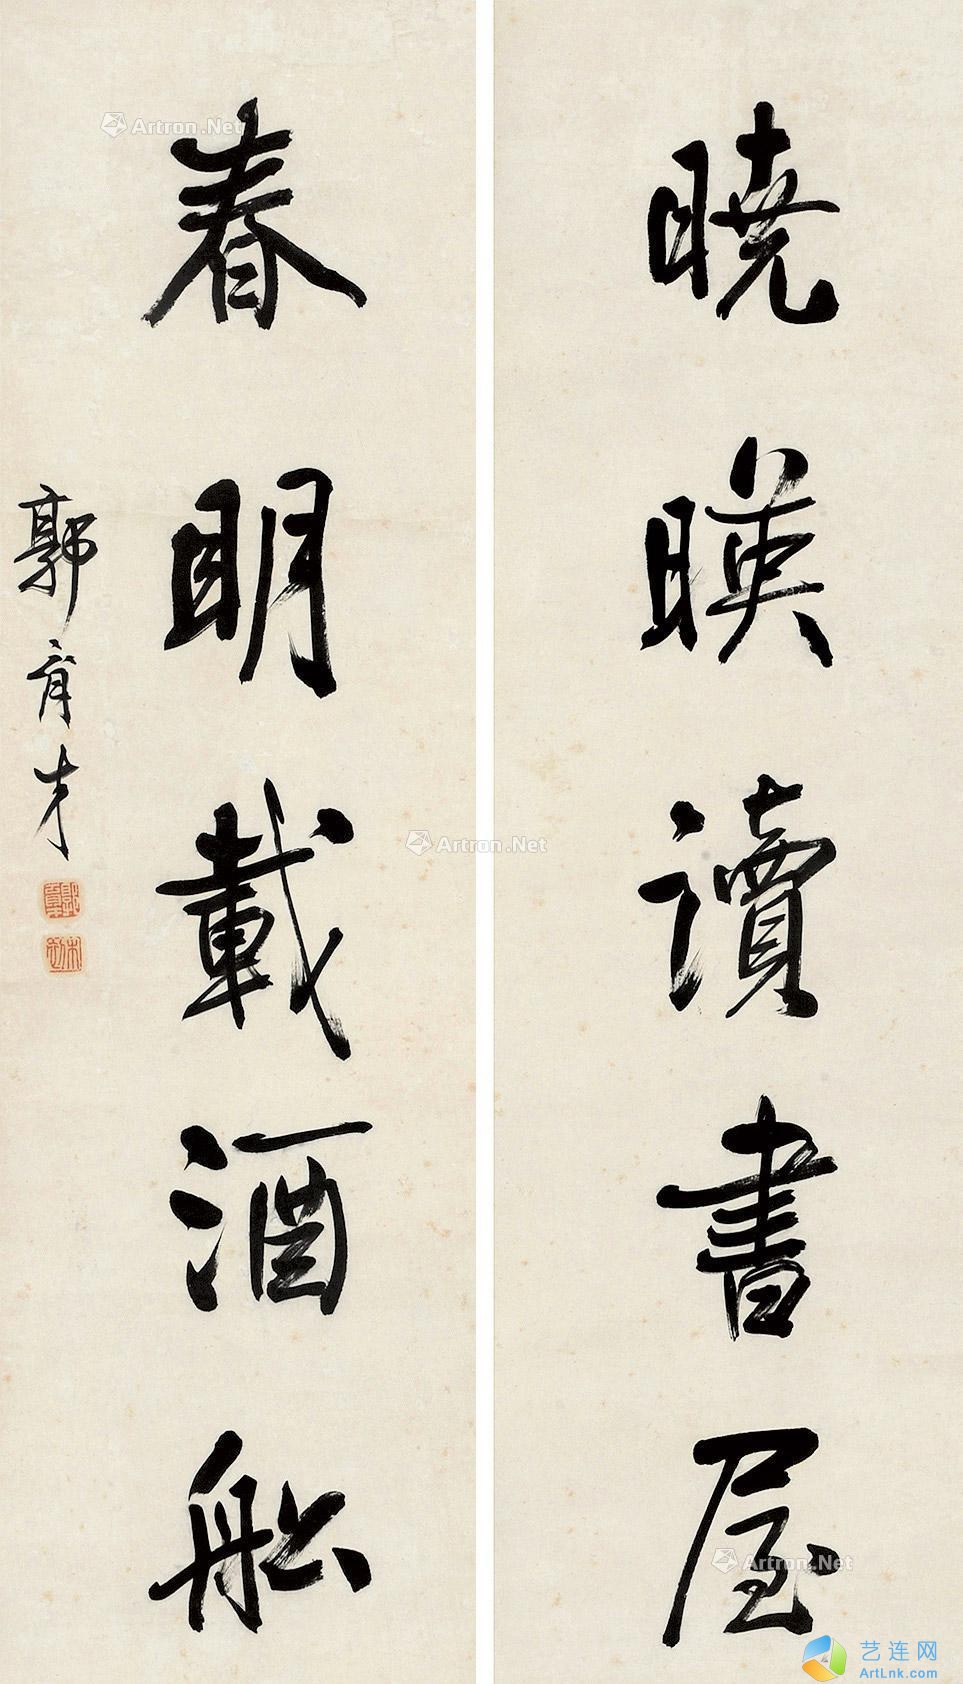 曉暎讀書屋
春明載酒船
郭育才
Artron.Net
Artron.Net
Artron.Net
艺连网
ArtLnk.com